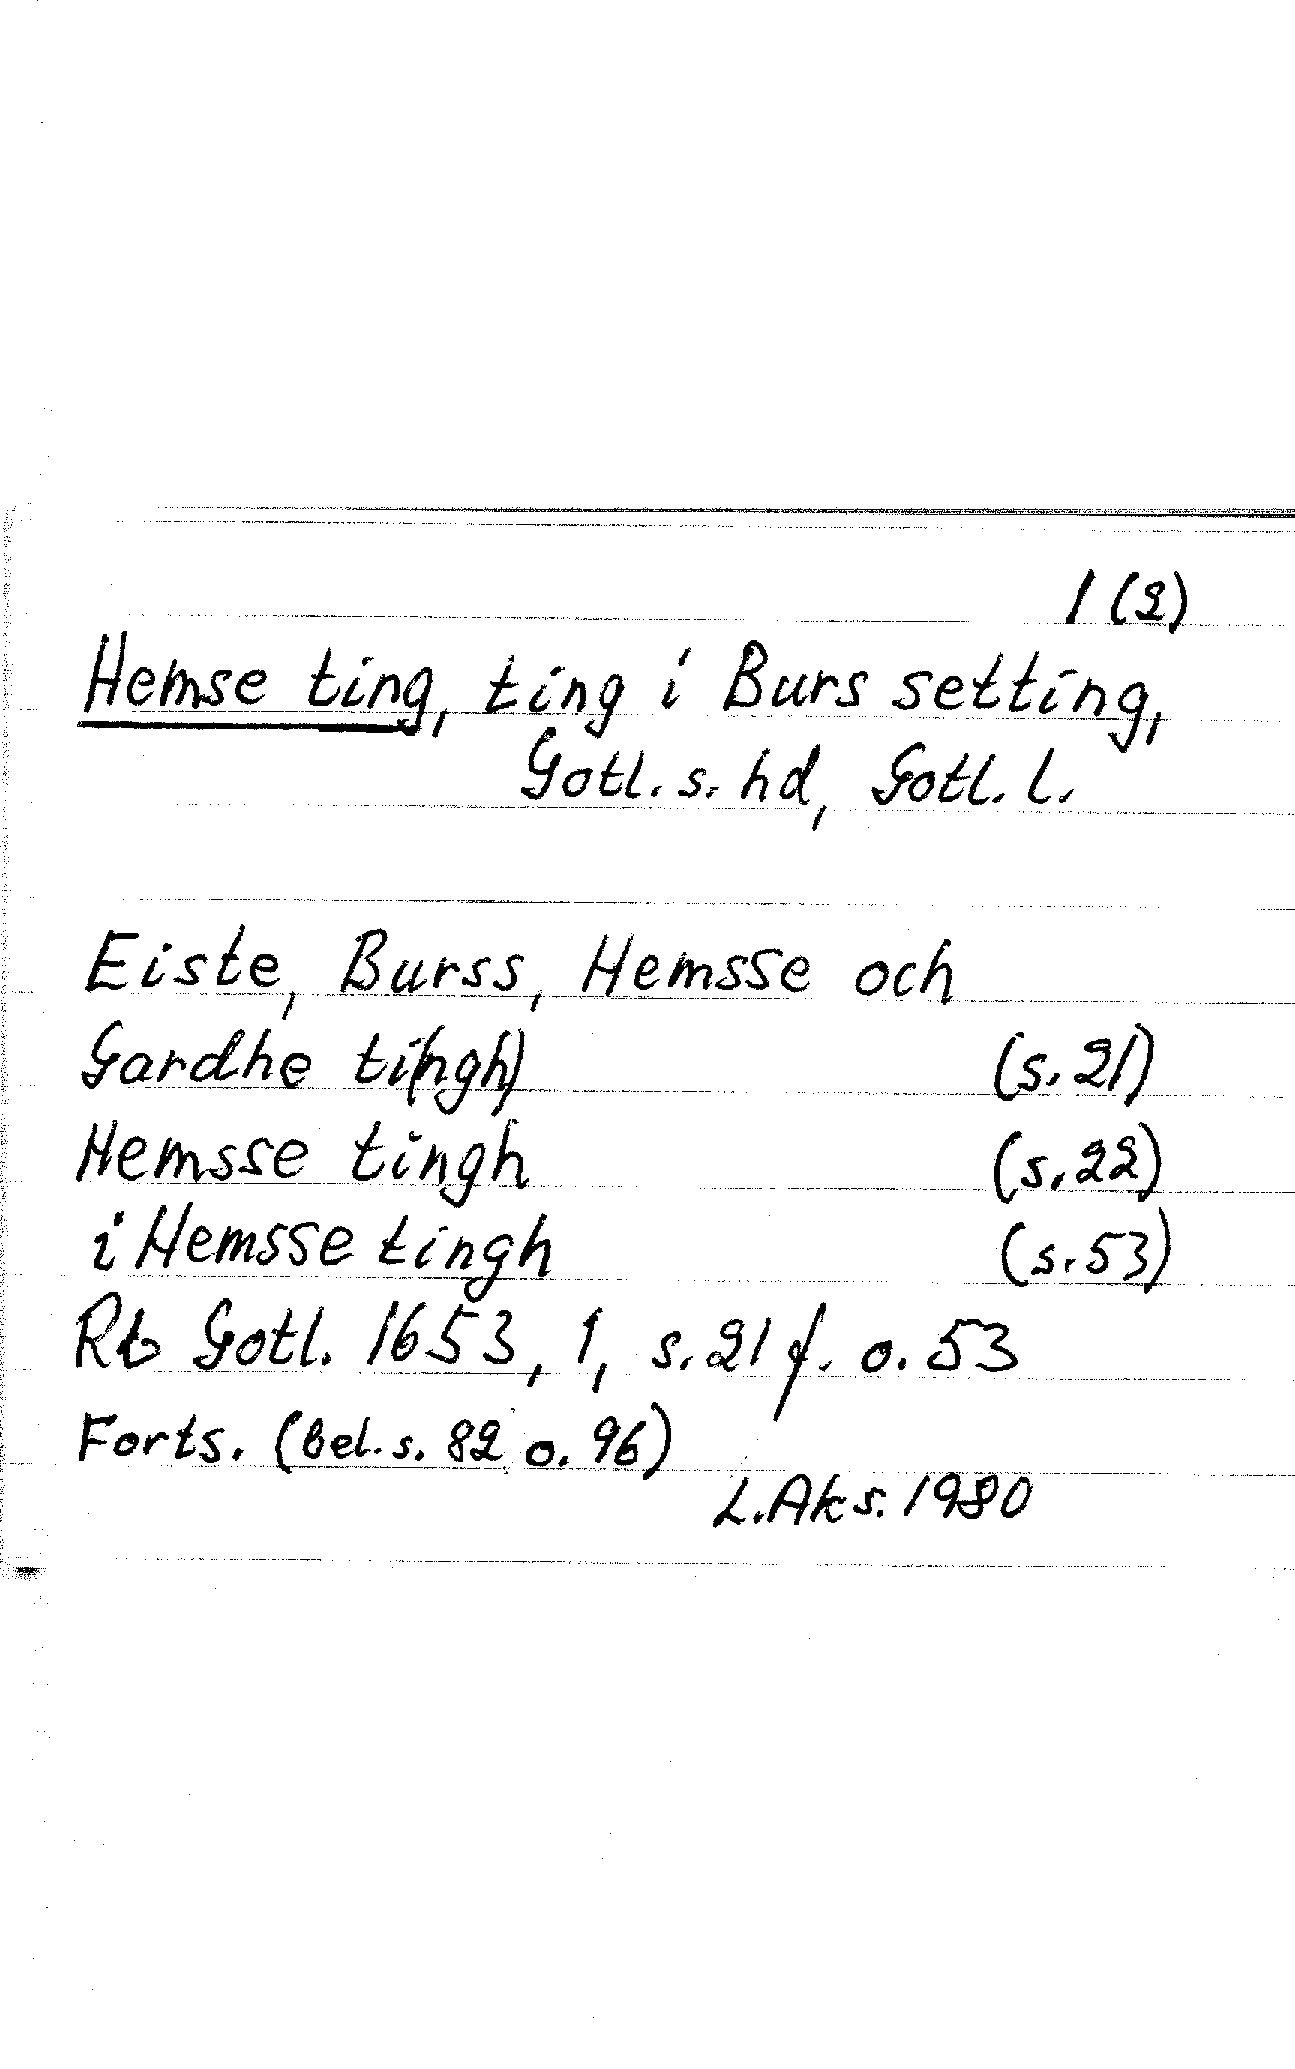 1 (2)
Hemse ting, ting i Burs setting,
Gotl. s. hd, Gotl. l.
Eiste, Burss, Hemsse och
Gardhe ti(ngh) (s. 21)
Hemsse tingh (s. 22)
i Hemsse tingh (s. 53)
Rb Gotl. 1653, 1, s. 21 f. o. 53
Forts. (bel. s. 82 o. 96)
L. Aks. 1980